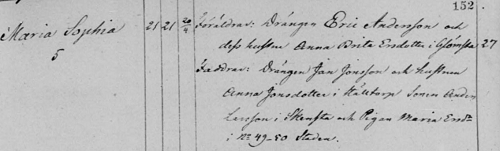 152.
Maria Sophia 21 21 20/4 Föräldrar: Drängen Eric Andersson och
5 dess hustru Anna Brita Ersdotter i Glömsta 27
Faddrar: Drängen Jan Jonsson och hustrun
Anna Jonsdotter i Källtorp Sonen Anders
Larsson i Skensta och Pigan Maria Ersdr
i No 49-50 Staden.